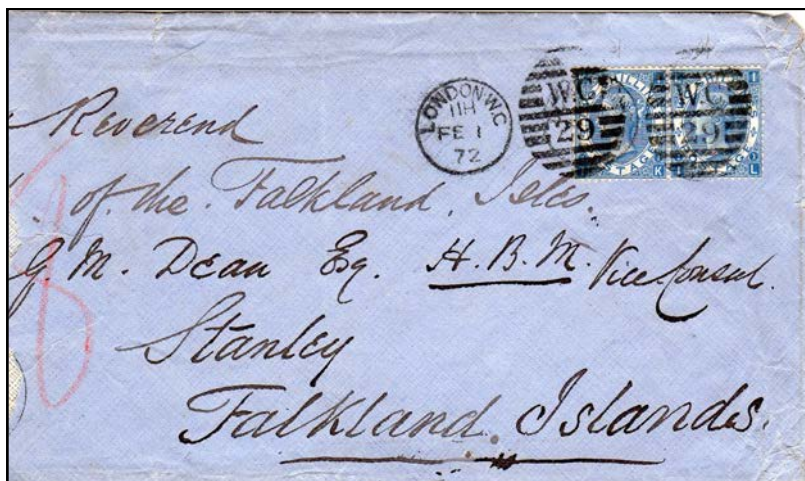 LONDON·W.C
11H
FE 1
72
W.C
29
W.C
29
Reverend
of the Falkland Isles.
G. M. Dean Esq. H. B. M. Vice Consul.
Stanley
Falkland Islands.